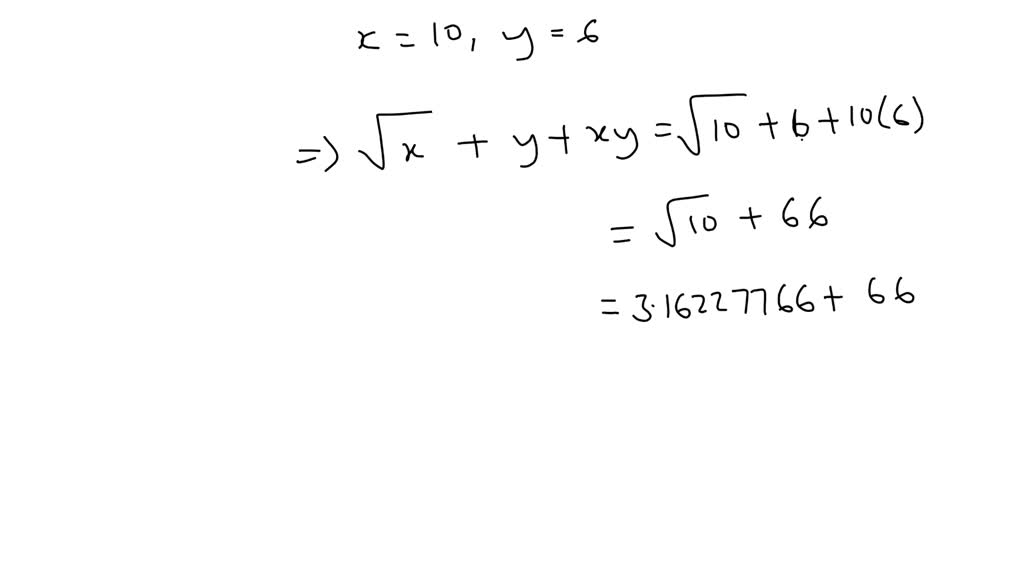 x = 10, y = 6
=> √x + y + xy = √10 + 6 + 10(6)
= √10 + 66
= 3.16227766 + 66